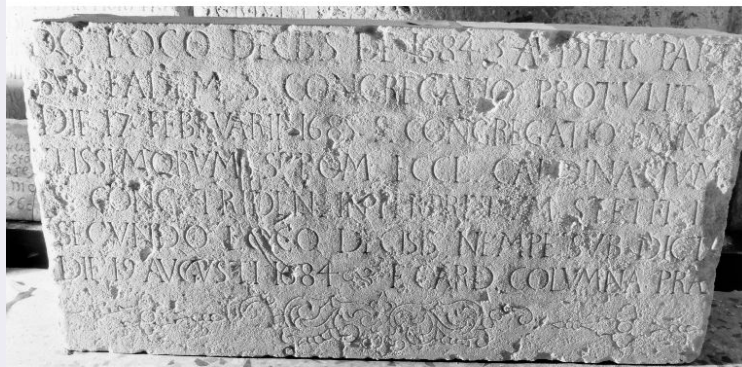 DO LOCO DECISIS DE 1684 ET AVDITIS PARTI
BVS EADEM S. CONGREGATIO PROTVLIT VT
DIE 17 FEBRVARII 1685 S. CONGREGATIO EMINEN
TISSIMORVM S. ROM. ECCL. CARDINALIVM
S. CONC. TRIDEN. INTERPRETVM STETIT I
SECVNDO LOCO DECISIS NEMPE SVB DICT
DIE 19 AVGVSTI 1684 F. CARD. COLVMNA PRA